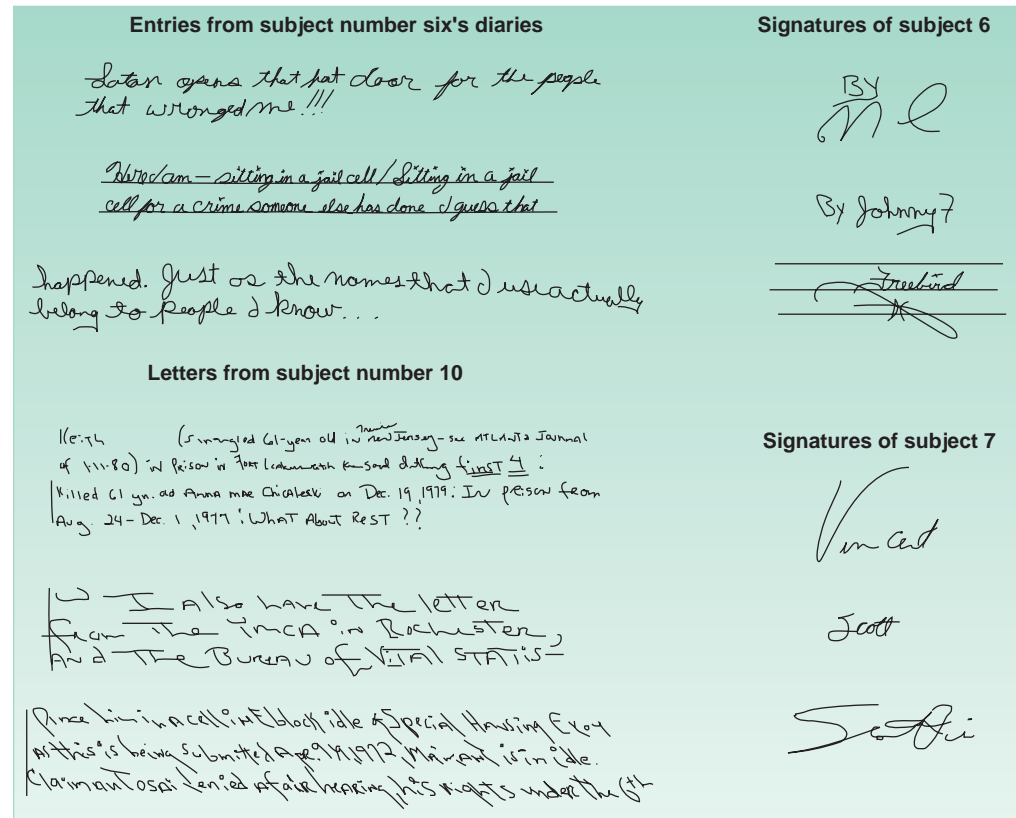 Entries from subject number six's diaries
Satan opens that hat door for the people
that wronged me!!!
Here I am — sitting in a jail cell / Sitting in a jail
cell for a crime someone else has done I guess that
happened. Just as the names that I use actually
belong to people I know...
Letters from subject number 10
Keith (strangled 61-year old in Trenton New Jersey - see ATLANTA Journal
of 1-11-80) in Prison in Fort during first 4 :
Killed 61 yr. old Anna mae on Dec. 19, 1979: In prison from
Aug. 24 - Dec. 1, 1977 : WhAT About ReST ??
I Also have The letter
from The YMCA in Rochester,
And The Bureau of VITAl STATIS-
him in A cell in E block idle & Special Housing
As this is being submitted is in idle.
Claimant denied A fair heAring, his rights under the 6th
Signatures of subject 6
BY
By Johnny 7
Freebird
Signatures of subject 7
Vincent
Scott
Scottie